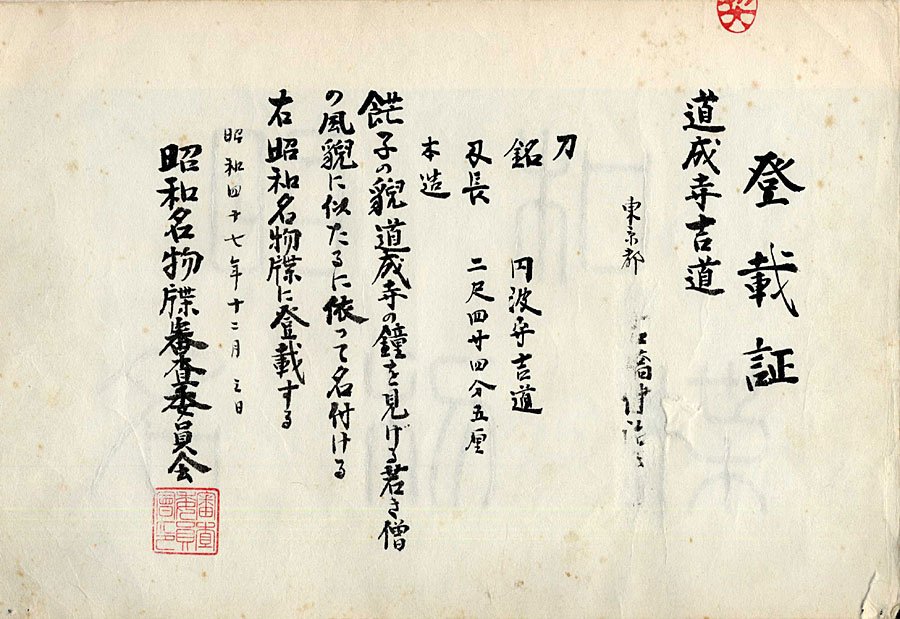 登載証
道成寺吉道
東京都
刀
銘 丹波守吉道
刃長 二尺四寸四分五厘
本造
鋩子の貌道成寺の鐘を見上げる若き僧
の風貌に似たるに依って名付ける
右昭和名物牒に登載する
昭和四十七年十二月三日
昭和名物牒審査委員会